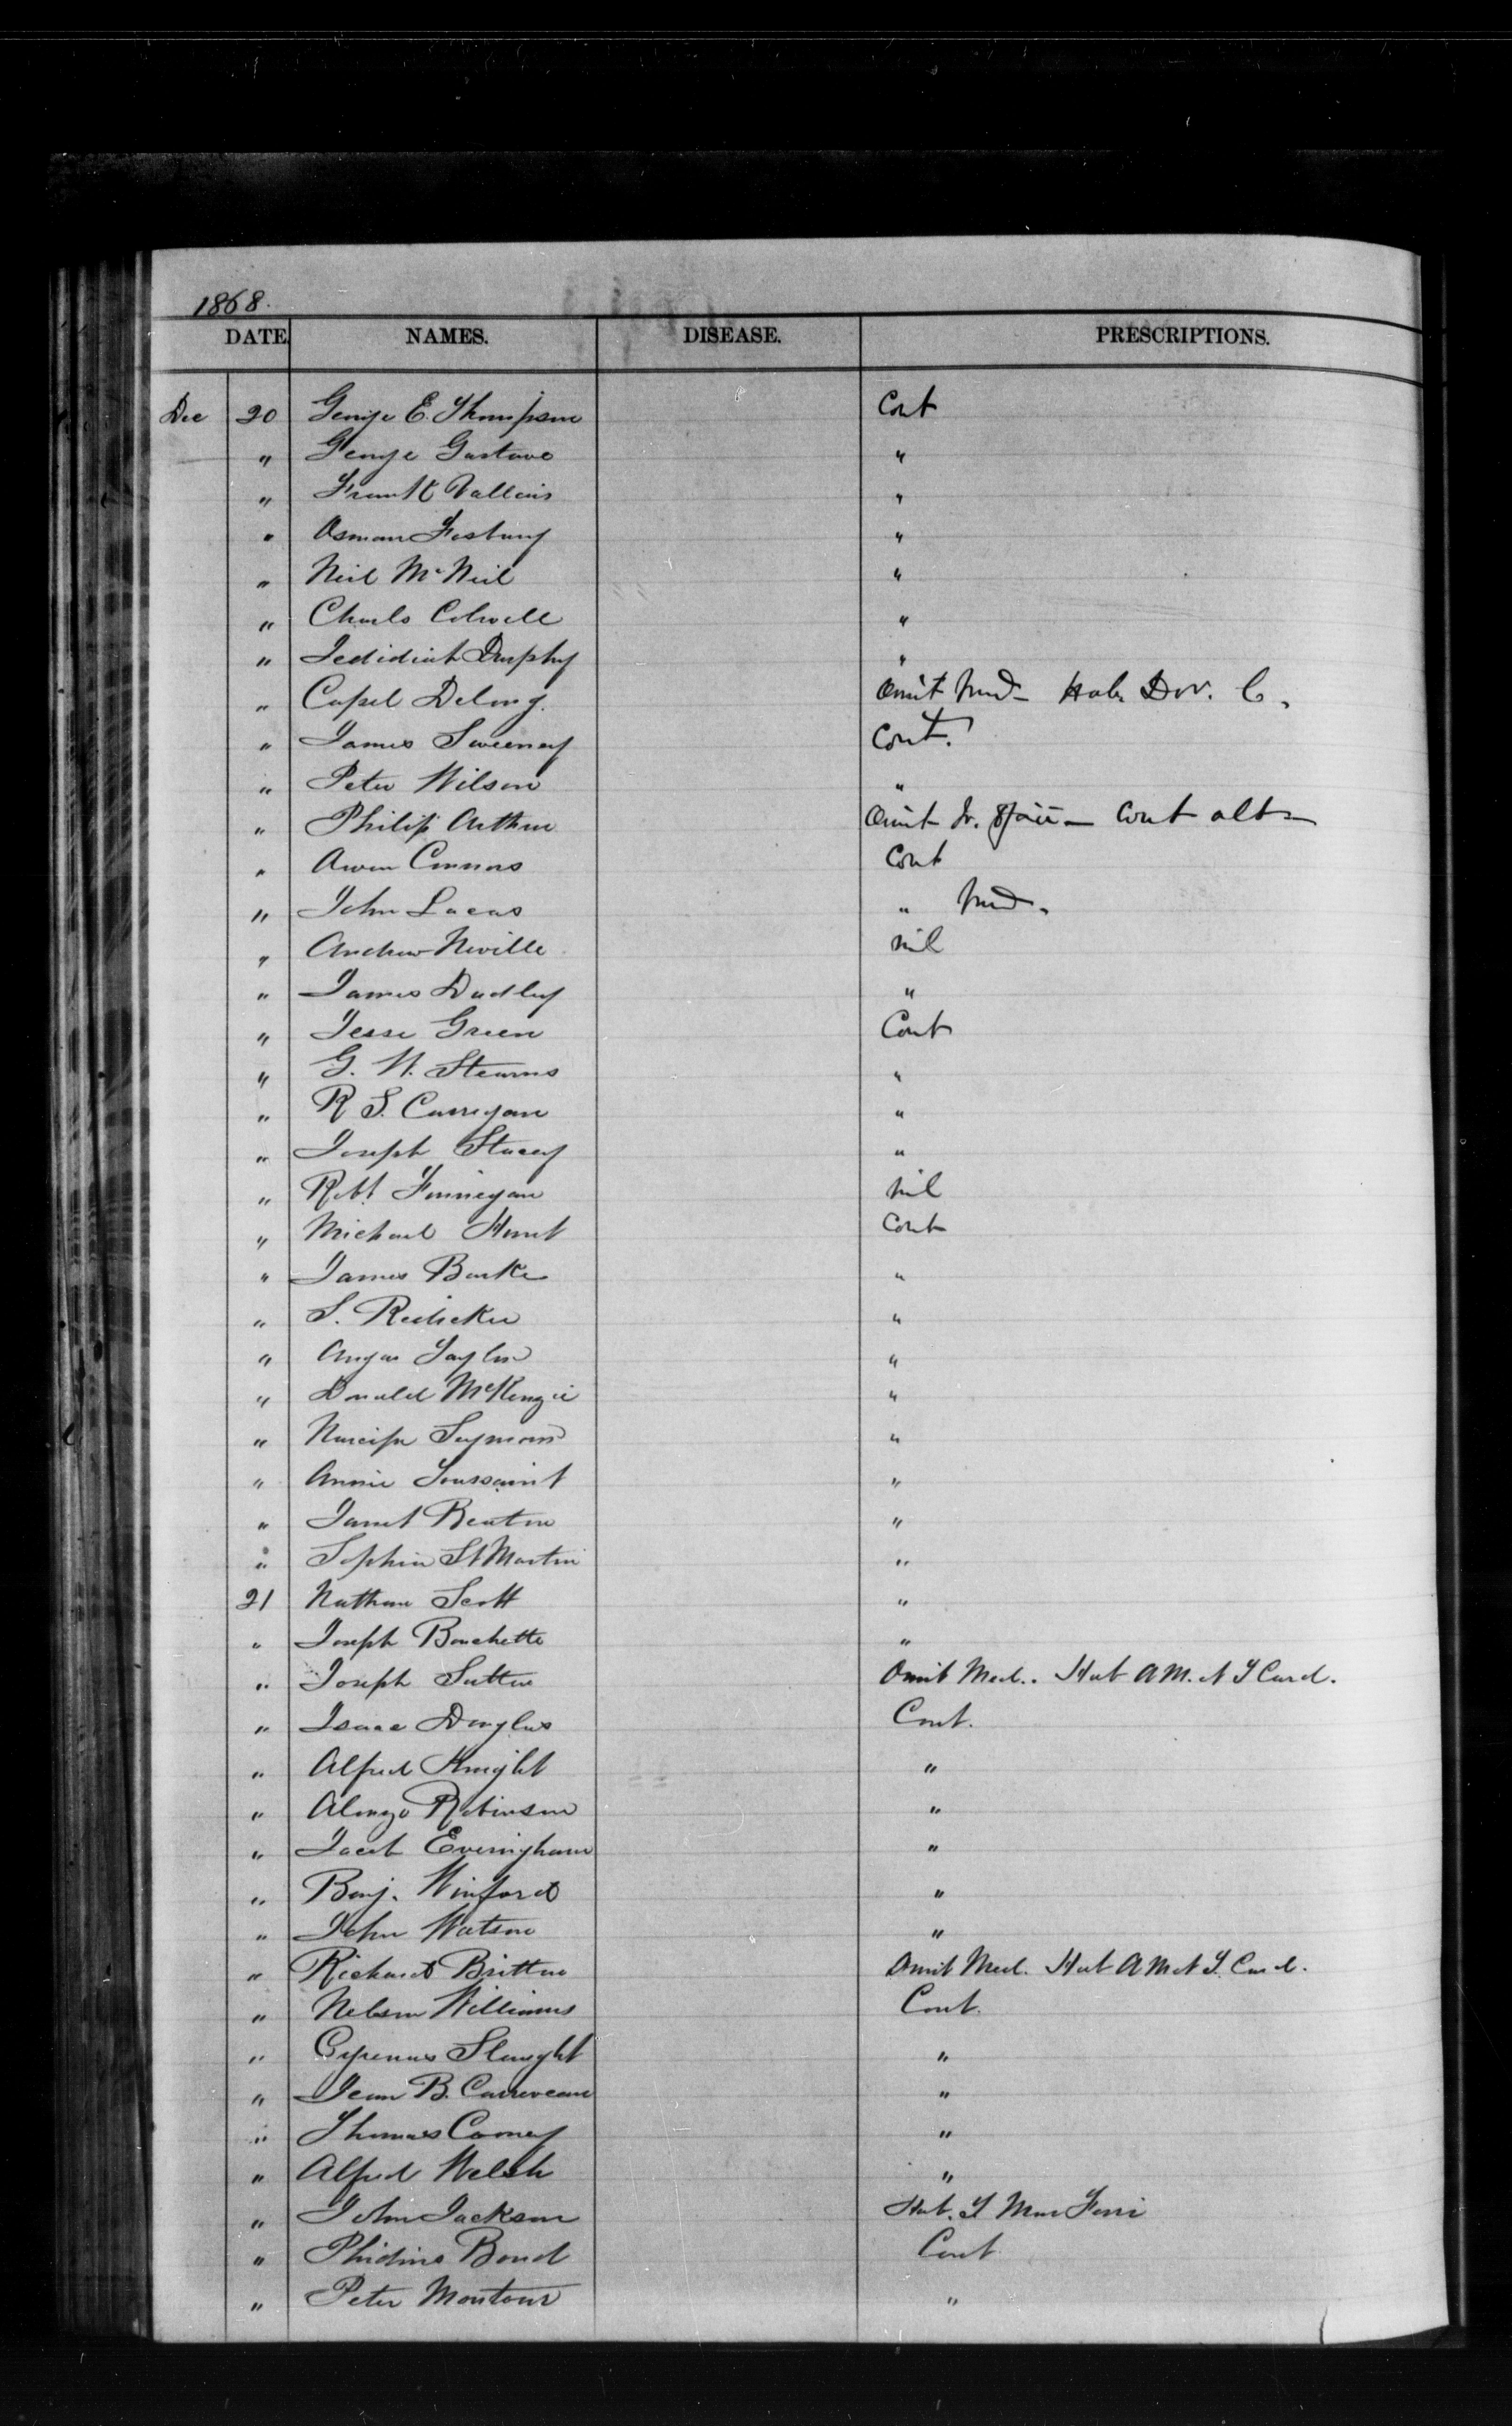 1868.
DATE NAMES. DISEASE. PRESCRIPTIONS.
Dec 20 George E. Thompson Cont
" George Gustave "
" Frank Vallens "
" Osman Fosbury "
" Neil McNeil "
" Charls Colwell "
" Jedidiah Durphy "
" Capel Delong. Omit Med - Hab. Dov. C.
" James Sweeney Cont.
" Peter Wilson "
" Philip Arthur Omit - Cont alt -
" Awen Connors Cont
" John Lucas " Med.
" Andrew Neville nil
" James Dudley "
" Jesse Green Cont
" G. W. Stearns "
" R S. Corrigan "
" Joseph Stacey "
" Robt Finnegan nil
" Michael Hunt Cont
" James Burke "
" S. "
" Angus Taylor "
" Donald McKenzie "
" Narcisse Seymour "
" Annie Toussaint "
" Janet Beaton "
" Sophia St Martin "
21 Nathan Scott "
" Joseph Bouchette "
" Joseph Sutton Omit Med.. Hab A M. et T Card.
" Isaac Douglas Cont.
" Alfred Knight "
" Alonzo Robinson "
" Jacob Everingham "
" Benj. Winford "
" John Watson "
" Richard Britton Omit Med. Hab A M et T. Card.
" Nelson Williams Cont.
" Cyrenus Slaught "
" Jean B. Carriveau "
" Thomas Cooney "
" Alfred Welsh "
" John Jackson Hab. T Mur Ferri
" Phidias Bond Cont
" Peter Montour "